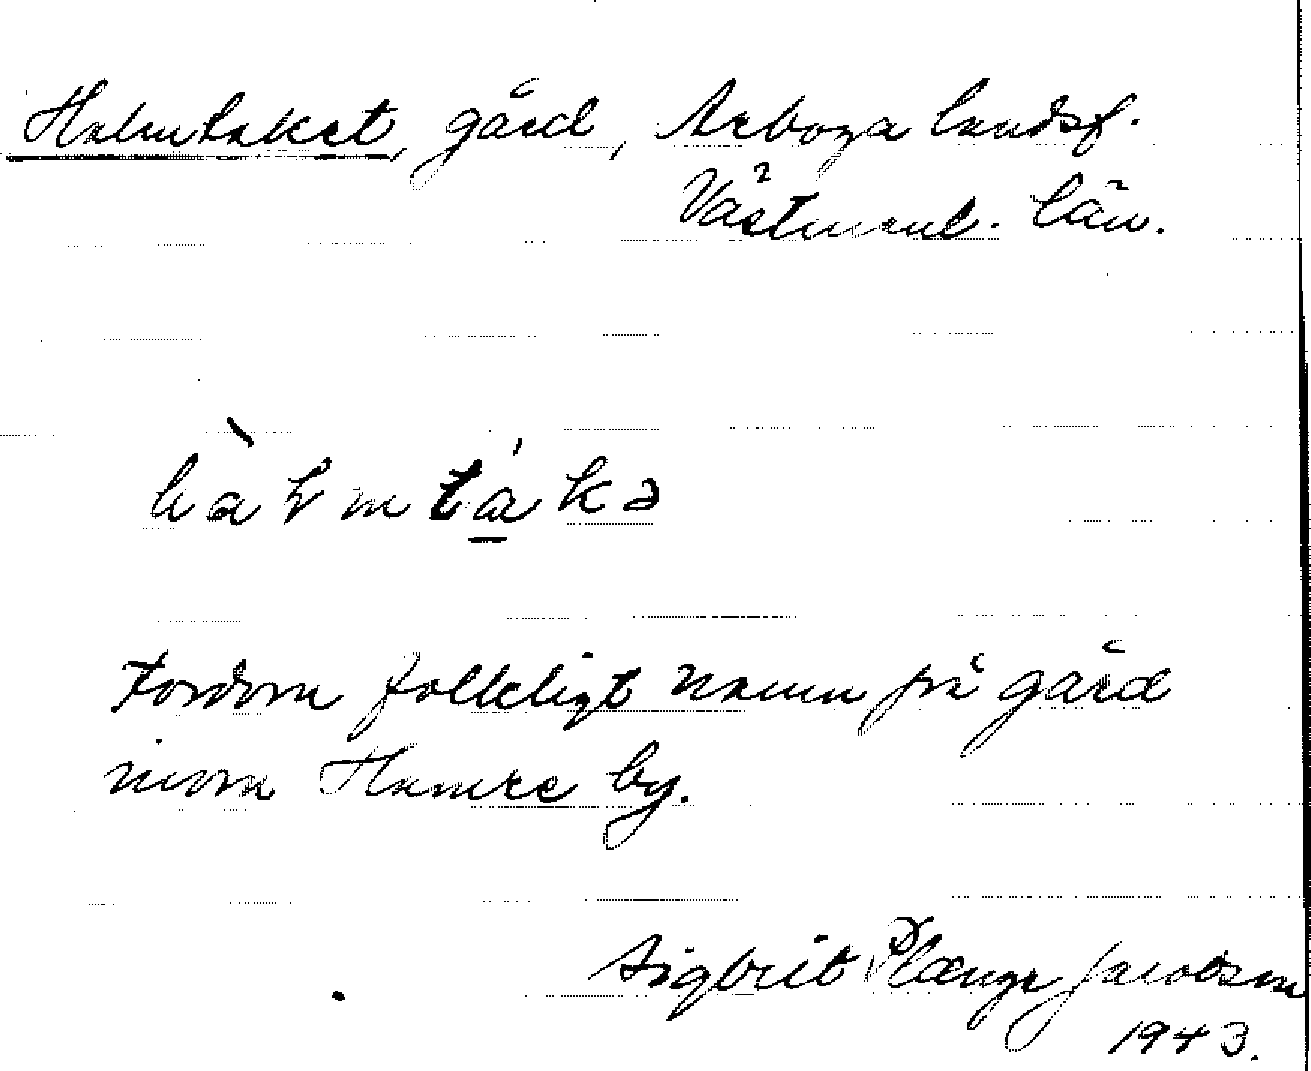 Halmtaket, gård, Arboga landsf.
Västmanl. län.
hàɫmtákə
Fordom folkligt namn på gård
inom Hamre by.
Sigbrit Plænge Jacobson
1943.